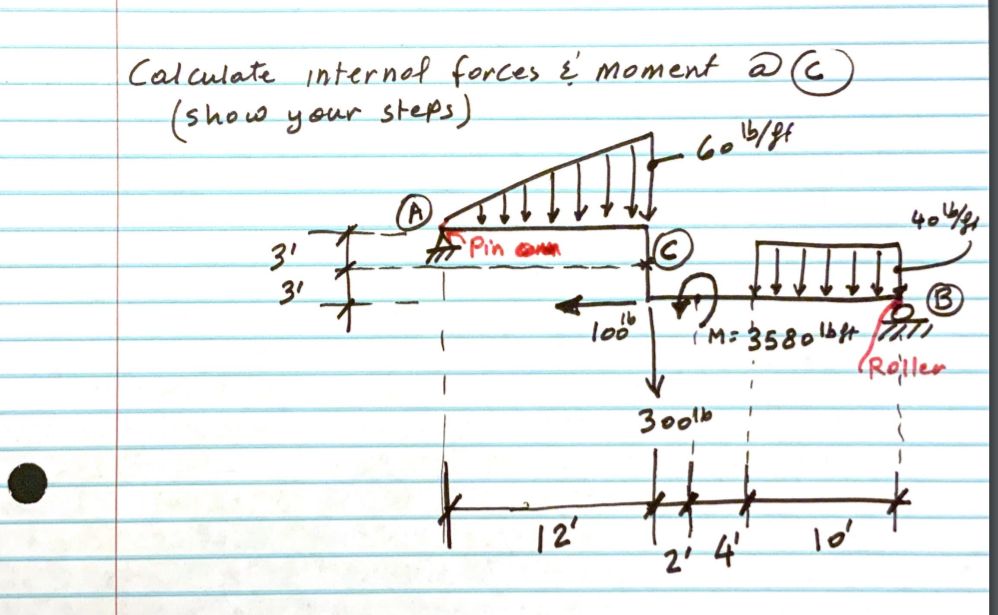 Calculate internal forces & moment @ C
(show your steps)
60 lb/ft
A
40 lb/ft
3'
Pin
C
3'
B
100 lb
M= 3580 lb ft
Roller
300 lb
12'
2'
4'
10'